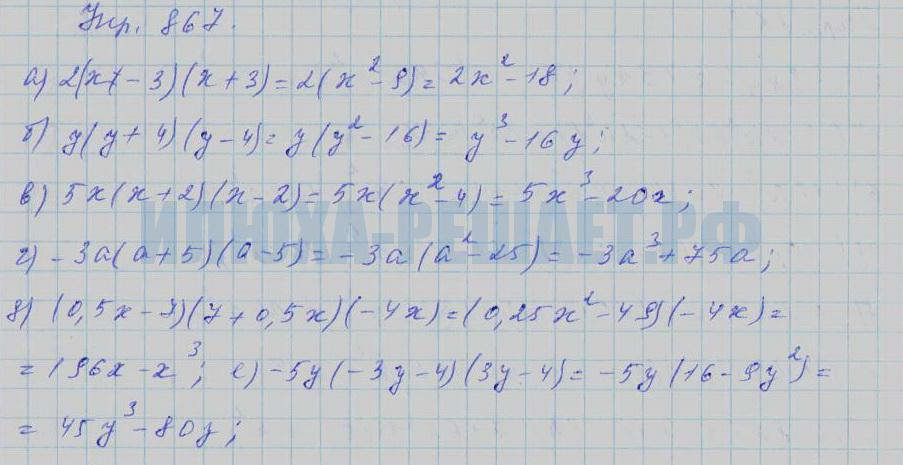 Упр. 867.
а) 2(x - 3)(x + 3) = 2(x² - 9) = 2x² - 18;
б) y(y + 4)(y - 4) = y(y² - 16) = y³ - 16y;
в) 5x(x + 2)(x - 2) = 5x(x² - 4) = 5x³ - 20x;
ИЛЮХА-РЕШАЕТ.РФ
г) -3a(a + 5)(a - 5) = -3a(a² - 25) = -3a³ + 75a;
д) (0,5x - 7)(7 + 0,5x)(-4x) = (0,25x² - 49)(-4x) =
= 196x - x³; е) -5y(-3y - 4)(3y - 4) = -5y(16 - 9y²) =
= 45y³ - 80y;